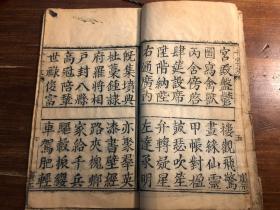 宮殿盤鬱樓觀飛驚
圖寫禽獸畫綵仙靈
丙舍傍啓甲帳對楹
肆筵設席鼓瑟吹笙
陞階納陛弁轉疑星
右通廣內左達承明
既集墳典亦聚羣英
杜藁鍾隷漆書壁經
府羅將相路夾槐卿
戶封八縣家給千兵
高冠陪輦驅轂振纓
世祿侈富車駕肥輕